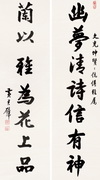 幽夢清詩信有神
蘭以雅為花上品